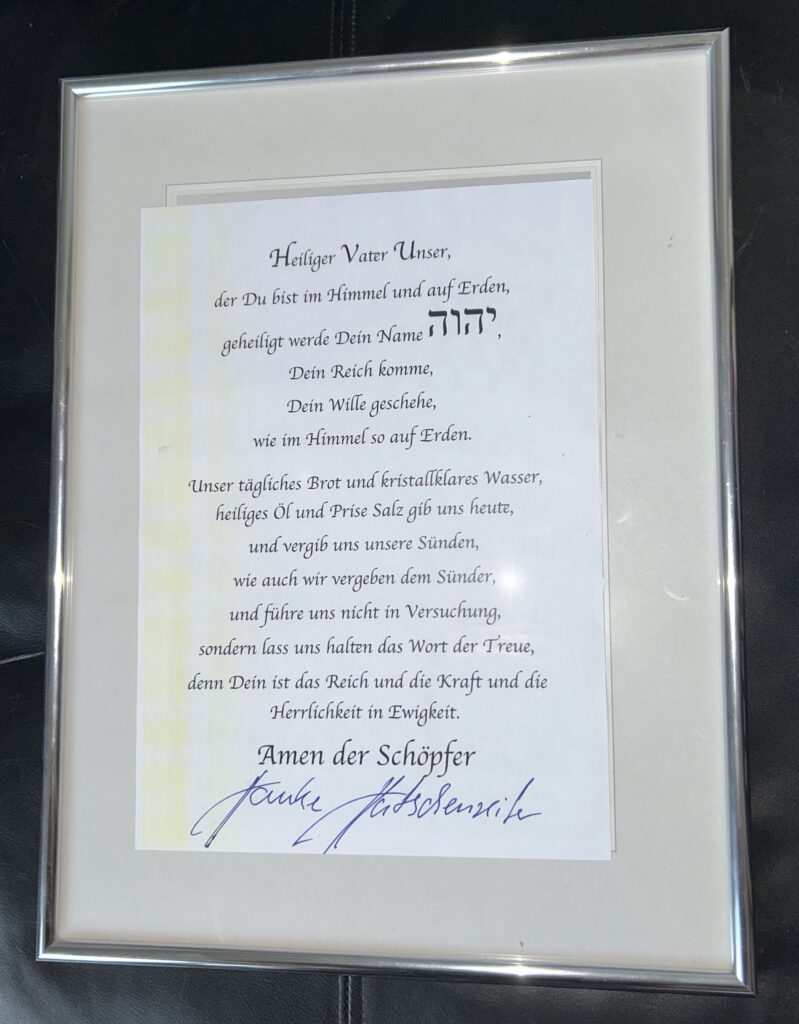 Heiliger Vater Unser,
der Du bist im Himmel und auf Erden,
geheiligt werde Dein Name יהוה,
Dein Reich komme,
Dein Wille geschehe,
wie im Himmel so auf Erden.
Unser tägliches Brot und kristallklares Wasser,
heiliges Öl und Prise Salz gib uns heute,
und vergib uns unsere Sünden,
wie auch wir vergeben dem Sünder,
und führe uns nicht in Versuchung,
sondern lass uns halten das Wort der Treue,
denn Dein ist das Reich und die Kraft und die
Herrlichkeit in Ewigkeit.
Amen der Schöpfer